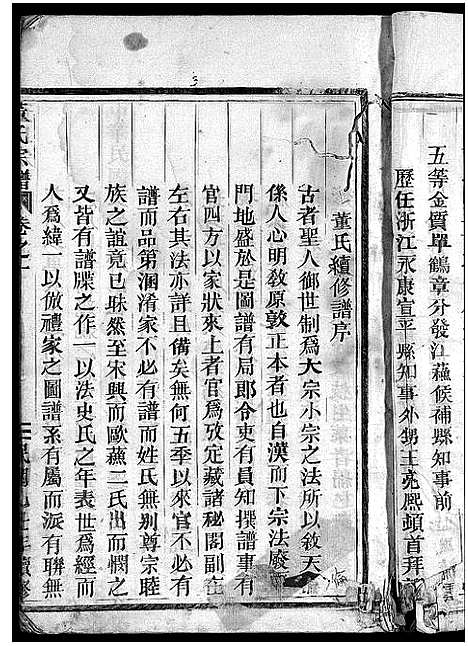 五等金質單鶴章分發江蘇候補縣知事前
歷任浙江永康宣平縣知事外甥王亮熙頓首拜
董氏續修譜序
古者聖人御世制爲大宗小宗之法所以敘天
係人心明敎原敦正本者也自漢而下宗法廢
門地盛於是圖譜有局郎令吏有員知撰譜事有
官四方以家狀來上者官爲攷定藏諸秘閣副在
左右其法亦詳且備矣無何五季以來官不必有
譜而品第溷淆家不必有譜而姓氏無别尊宗睦
族之誼竟已昧然至宋興而歐蘇二氏出而憫之
又皆有譜牒之作一以法史氏之年表世爲經而
人爲緯一以倣禮家之圖譜系有屬而派有聯無
氏宗譜
卷之一